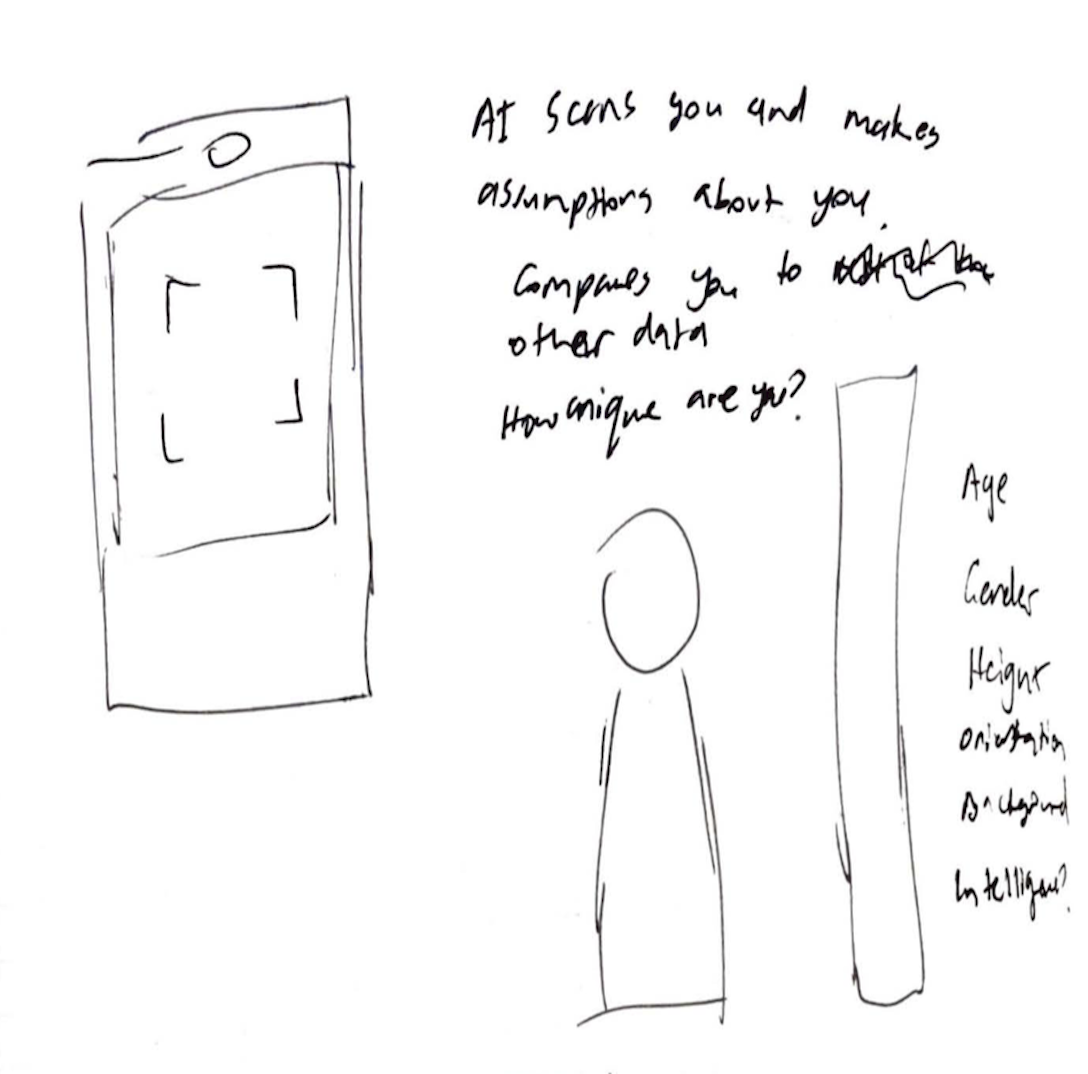 AI scans you and makes
assumptions about you.
Compares you to
other data
How unique are you?
Age
Gender
Height
Orientation
Background
Intelligence?